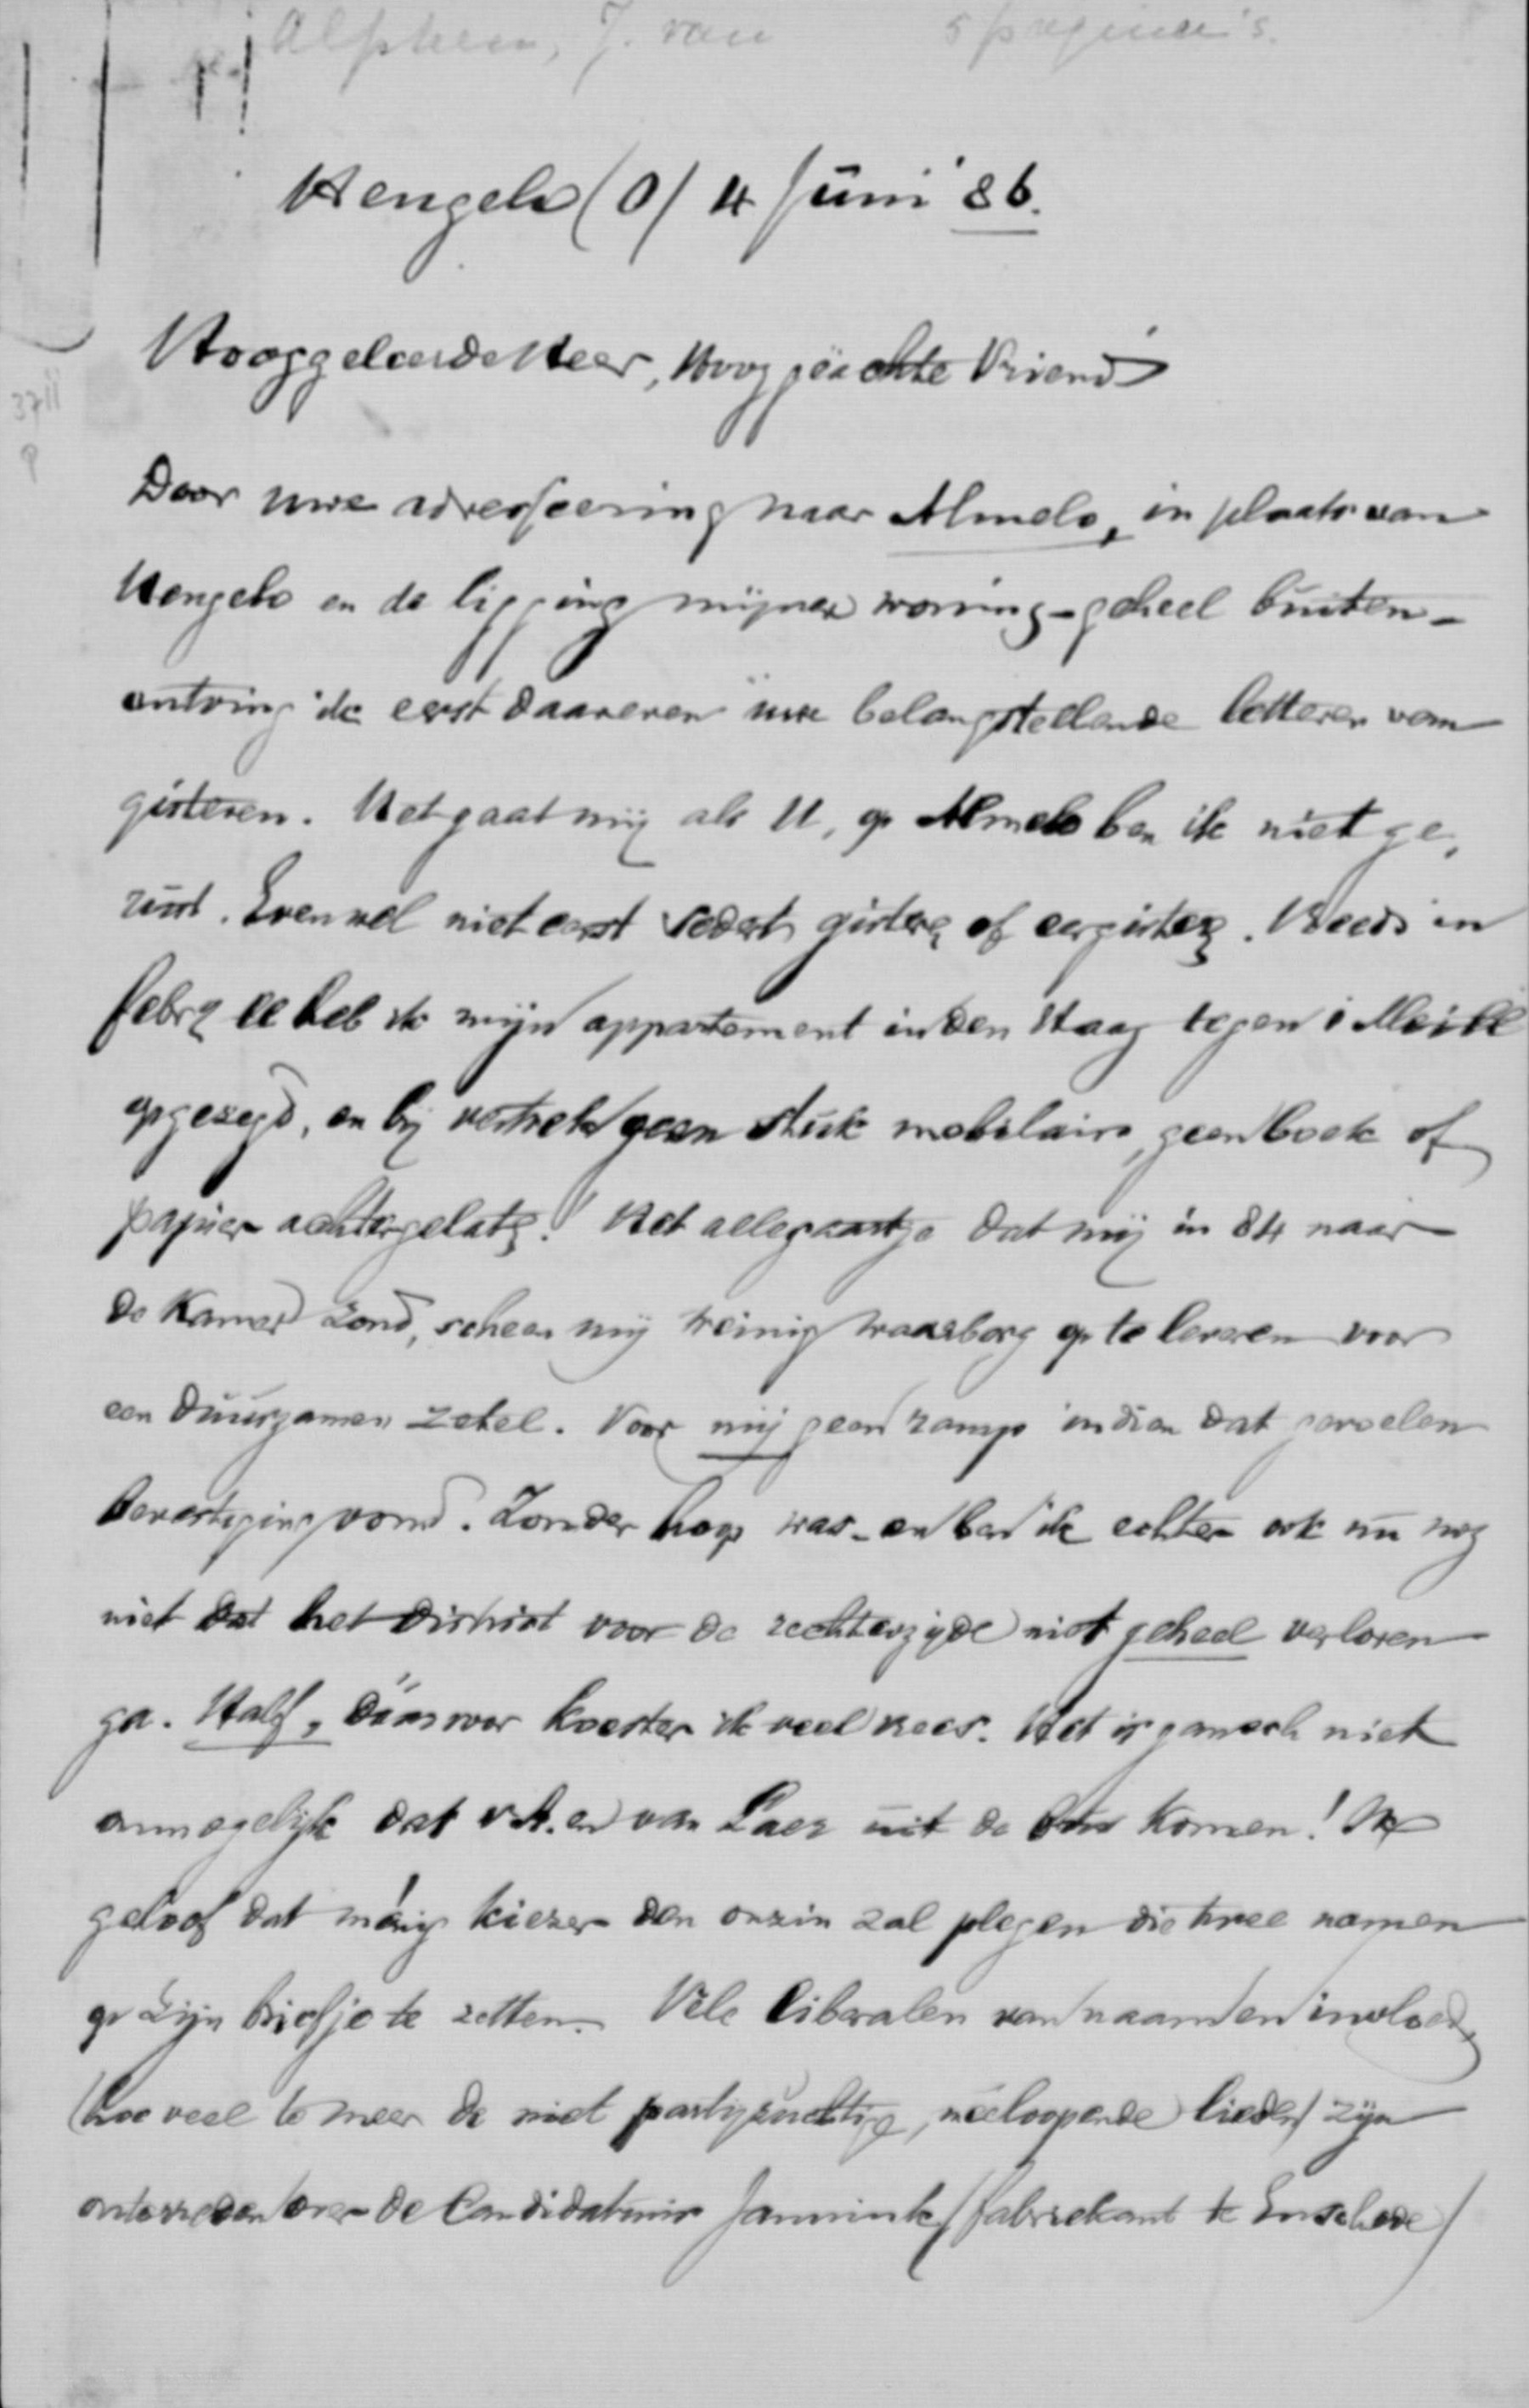 Alphen, J. van 5 pagina's.
Hengelo (O) 4 Juni '86.
Hooggeleerde Heer, Hooggeachte Vriend
3711
Door uwe adresseering naar Almelo, in plaats van
Hengelo en de ligging mijner woning - geheel buiten -
ontving ik eerst daareven uwe belangstellende letteren van
gisteren. Het gaat mij als U, op Almelo ben ik niet ge,
rust. Evenwel niet eerst sedert gisteren of eergisteren. Reeds in
febr ll heb ik mijn appartement in den Haag tegen 1 Mei ll
opgezegd, en bij vertrek geen stuk mobilair, geen boek of
papier achtergelaten! Het allegaartje dat mij in 84 naar
de Kamer zond, scheen mij weinig waarborg op te leveren voor
een duurzamen zetel. Voor mij geen ramp indien dat gevoelen
bevestiging vond. Zonder hoop was en ben ik echter ook nu nog
niet dat het district voor de rechterzijde niet geheel verloren
ga. Half, dáarvoor koester ik veel vrees. Het is gansch niet
onmogelijk dat v.A. en van Laer uit de bus komen! Ik
geloof dat ménig kiezer den onzin zal plegen die twee namen
op zijn briefje te zetten. Vele liberalen van naam en invloed,
(hoe veel te meer de niet partijzuchtige, meeloopende lieden) zijn
ontevreden over de Candidatuur Jannink (fabriekant te Enschede)